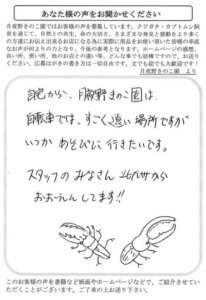 あなた様の声をお聞かせください
月夜野きのこ園ではお客様の声を募集しています。クワガタ・カブトムシ飼
育を通じて、自然との共生、命の大切さ、さまざまな発見と感動をより多く
の方達にお伝え出来るお店になる為に実際に用品をお使い頂いた皆様の率直
なお声が何よりの力となり、今後の参考となります。ホームページの感想、
良い所、悪い所、他のお店との違い等、どんな事でも結構ですので、お送り
ください。応募はがきの書き方は一切自由です。文でも絵でも大歓迎です！
月夜野きのこ園 より
から、月夜野きのこ園は
自動車では、すごく遠い場所ですが
いつか あそびに 行きたいです。
スタッフの みなさん から
おおえんしてます!!
このお客様の声を書籍など紙面やホームページなどで、ご紹介させてい
ただくことがございます。ご了承の上お送り下さい。